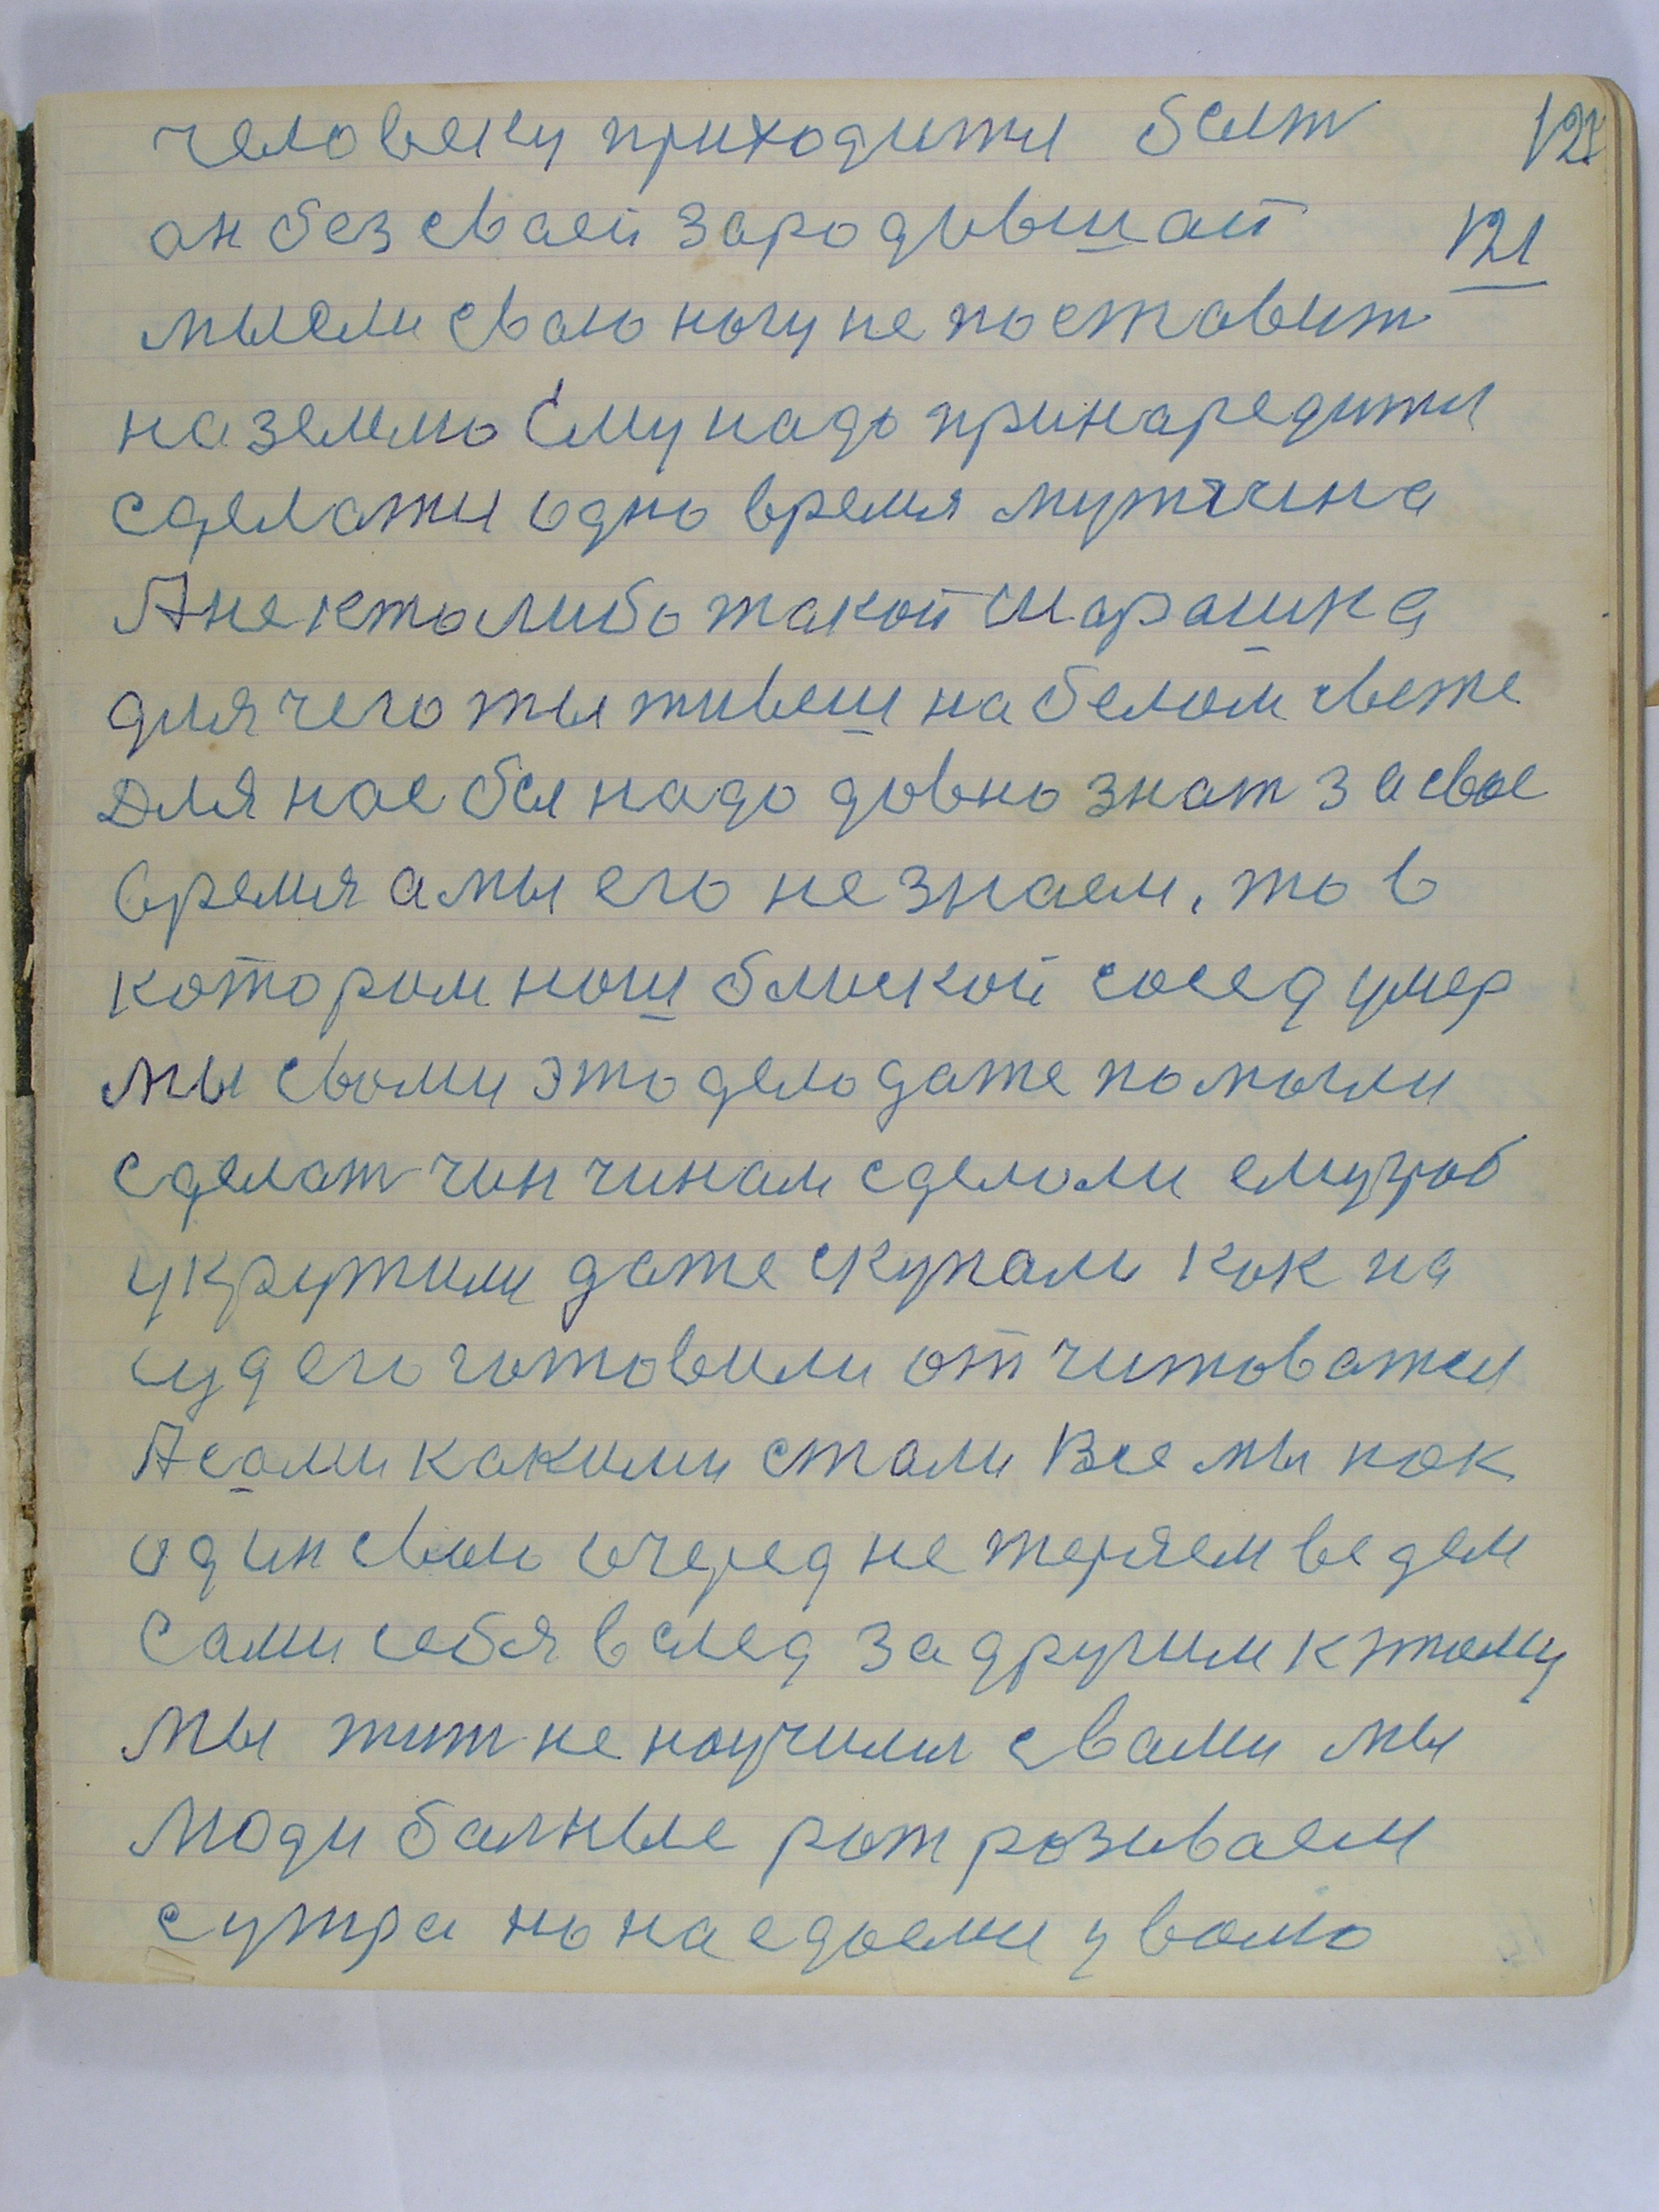 человеку приходится быт 121
он без сваей зародившай 121
мысли сваю ногу не поставит
на землю Ему надо принаредится
сделатся одно время мущина
А не кто либо такой шарашка
для чего ты живеш на белом свете
Для нас бы надо давно знат за свое
время а мы его не знаем, то в
котором наш блиской сосед умер
мы свами это дело даже помогли
сделат чин чинам сделали ему гроб
укрутили даже скупали как на
суд его готовили отчитоватся
А сами какими стали Все мы как
один сваю очеред не теряем ведем
Сами себя вслед за другим к тому
мы жит не научился свами мы
люди балные рот розиваем
сутра но наедаемся уволю